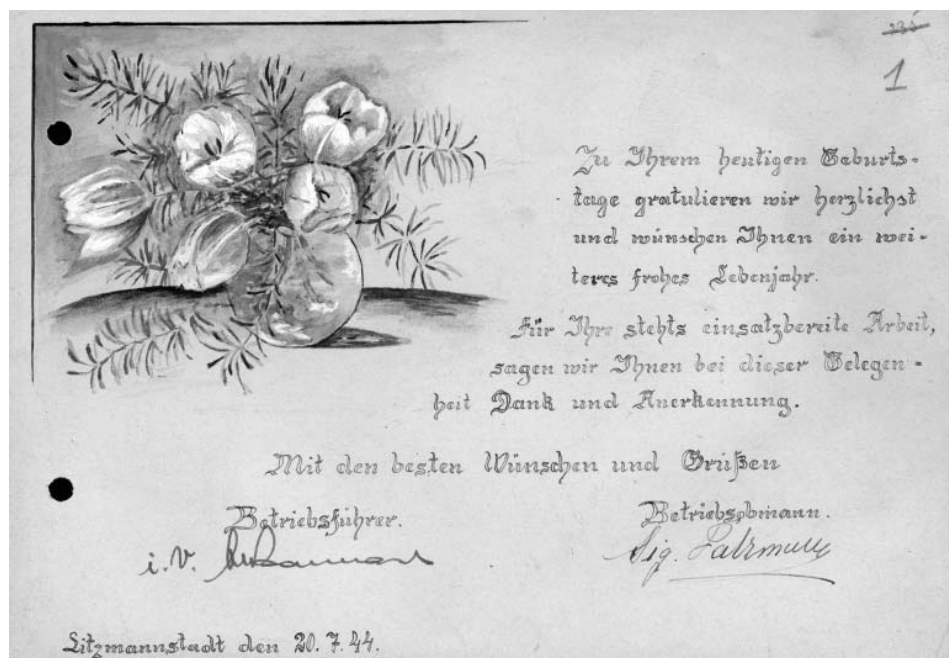 1
Zu Ihrem heutigen Geburts-
tage gratulieren wir herzlichst
und wünschen Ihnen ein wei-
teres frohes Lebenjahr.
Für Ihre stehts einsatzbereite Arbeit,
sagen wir Ihnen bei dieser Gelegen-
heit Dank und Anerkennung.
Mit den besten Wünschen und Grüßen
Betriebsführer. Betriebsobmann.
i.V.
Litzmannstadt den 20. 7. 44.